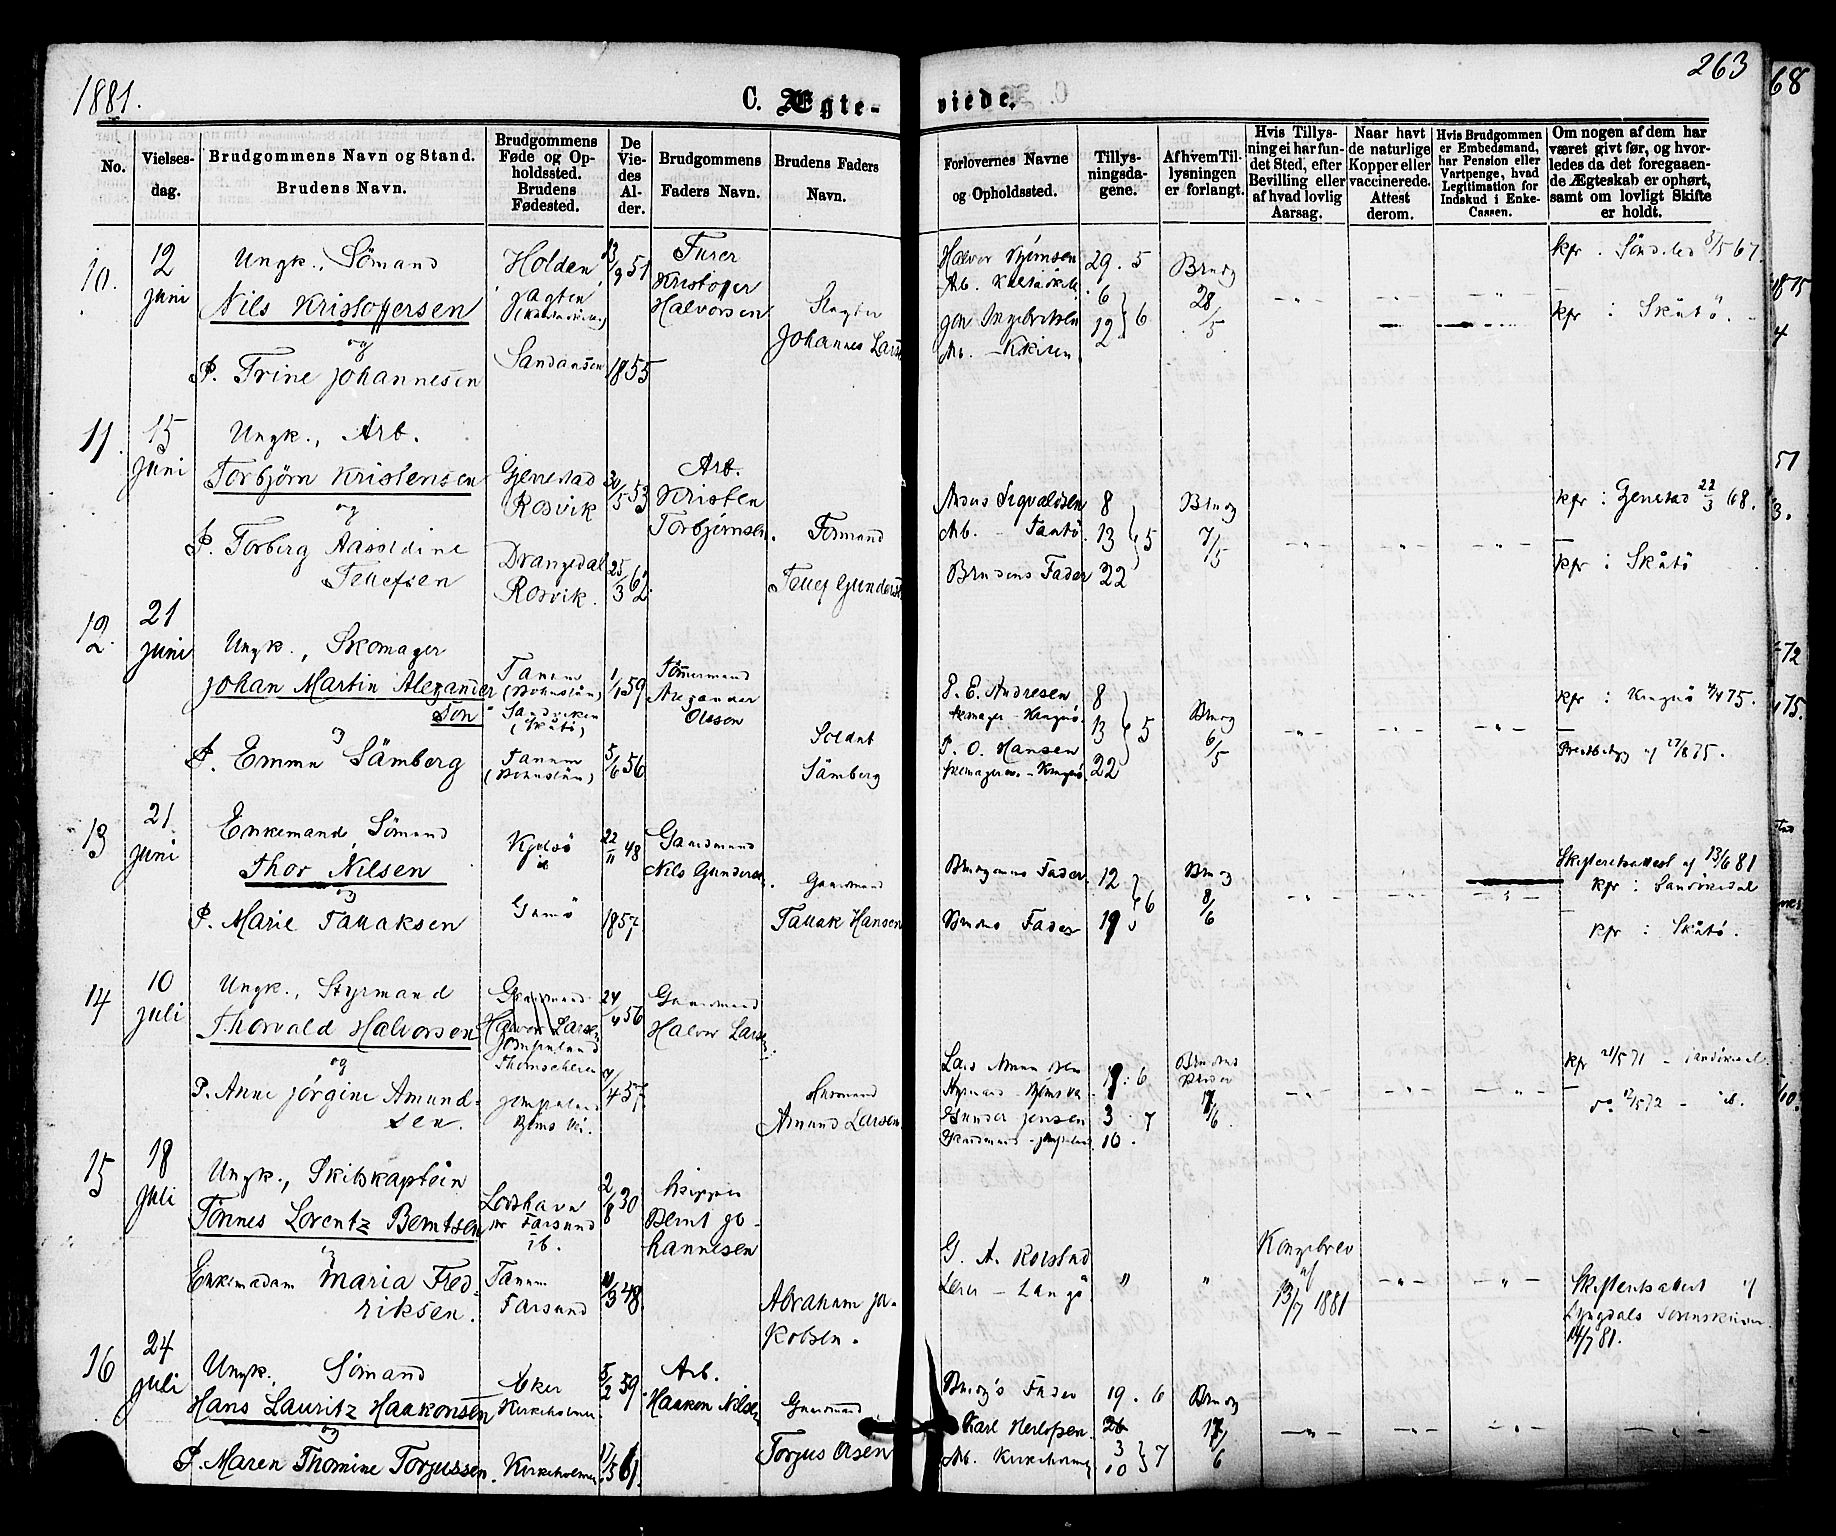 1881.
C. Ægte-
viede.
263
68
No.
Vielses-
dag.
Brudgommens Navn og Stand.
Brudens Navn.
Brudgommens
Føde og Op-
holdssted.
Brudens
Fødested.
De
Vie-
des
Al-
der.
Brudgommens
Faders Navn.
Brudens Faders
Navn.
Forlovernes Navne
og Opholdssted.
Tillys-
ningsda-
gene.
Af hvem Til-
lysningen
er forlangt.
Hvis Tillys-
ning ei har fun-
det Sted, efter
Bevilling eller
af hvad lovlig
Aarsag.
Naar havt
de naturlige
Kopper eller
vaccinerede.
Attest
derom.
Hvis Brudgommen
er Embedsmand,
har Pension eller
Vartpenge, hvad
Legitimation for
Indskud i Enke-
Cassen.
Om nogen af dem har
været givt før, og hvor-
ledes da det foregaaen-
de Ægteskab er ophørt,
samt om lovligt Skifte
er holdt.
10.
12
juni
Ungk., Sömand
Nils Kristoffersen
og
P. Trine Johannesen
Holden
Sandansen
13/9 51
1855
Furer
Kristoffer
Halvorsen
Slagter
Johannes Lars
Halvor
Arb.
Jon Ingebriktsen
Arb.
29. 5
6
12 } 6
2
Brudg
28/5
kfr. Söndeled 67
kfr : Skåtö.
11.
15
juni
Ungk., Arb.
Torbjörn Kristensen
og
P. Torberg Aasoldine
Tellefsen
Gjerestad
Rosvik
Drangedal
Rosvik.
30/5 53
25/3 62
Arb.
Kristen
Torbjörnsen.
Formand
Tellef Gunders
Sigvaldsen
Arb. - Taatö.
Brudens Fader
8
13 } 5
22
Brudg
7/5
kfr : Gjerestad 22/3 68.
kfr : Skåtö
12.
21
juni
Ungk., Skomager
Johan Martin Alexander
Son
og
P. Emma Sämberg
Tanum
(Bohuslän)
Sandviken
(Skåtö)
Tanum
(Bohuslän)
1/1 59
5/6 56
Tömmermand
Alexander
Olsson
Soldat
Sämberg
P. E. Andresen
P. O. Hansen
8
13 } 5
22
Brudg
6/5
kfr : Kragerö 4/4 75.
13
21
juni
Enkemand, Sömand
Thor Nilsen
og
P. Marie Tallaksen
22/11 48
1857
Gaardmand
Nils Gundersen
Gaardmand
Tallak Hansen
Brudgommens Fader
Brudens Fader
12
19 } 6
Brudg
8/6
Skifteretsattest af 13/6 81
kfr : Sandökedal
kfr : Skåtö.
14
10
juli
Ungk., Styrmand
Thorvald Halvorsen
og
P. Anne Jörgine Amund-
sen.
Gaardmand
Halvor Larsen
24/4 56
57
Gaardmand
Halvor Larsen.
Amund Larsen
Gunder Jensen
19. 6
3. 7
10.
Brudens
Fader
17/6.
15
18
juli
Ungk., Skibskaptein
Tönnes Lorentz Berntsen
og
Enkemadam Maria Fred-
riksen.
Loshavn
pr Farsund
ib.
Tanum
Farsund
2/8 30
48
Skipper
Bernt Jo-
hannesen
Abraham Ja-
kobsen.
G. A. Rolstad
Lærer - Langö
Kongebrev
af
13/7 1881
Skifteretsattest af
Lyngdals Sorenskriver
14/7 81.
16
24
juli
Ungk., Sömand
Hans Lauritz Haakonsen
og
P. Maren Thomine Torjussen.
Aker
Kirkeholmen.
Kirkeholmen
5/2 59.
17/5 61.
Arb.
Haakon Nilsen
Gaardmand
Torjus Olsen
Brudg's Fader
Karl Herlofsen.
Arb. Kirkeholmen
19. 6
26
3
10 } 7
Brudg
17/6